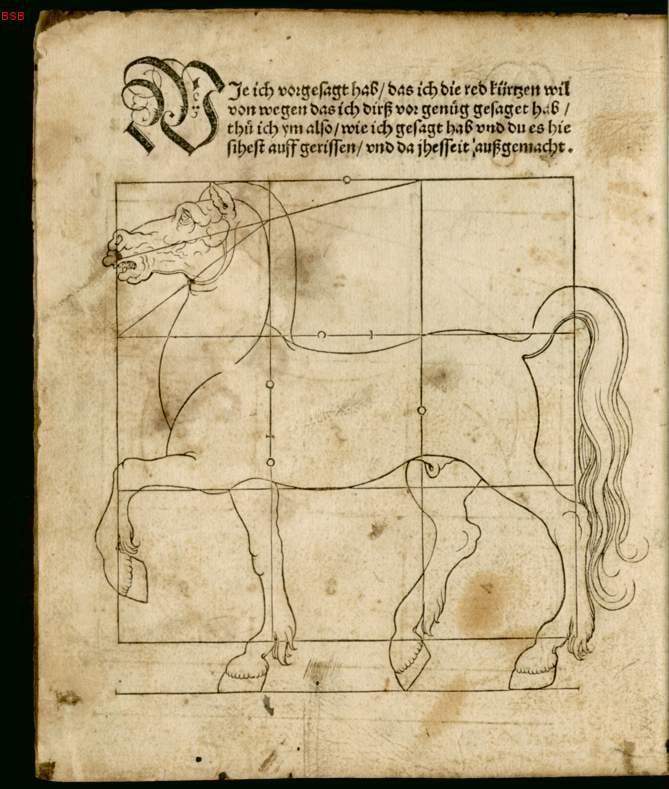 BSB
WIe ich vorgesagt hab / das ich die red kürtzen wil
von wegen das ich dirß vor genůg gesaget hab /
thů ich ym also / wie ich gesagt hab vnd du es hie
sihest auff gerissen / vnd da jhesseit außgemacht.